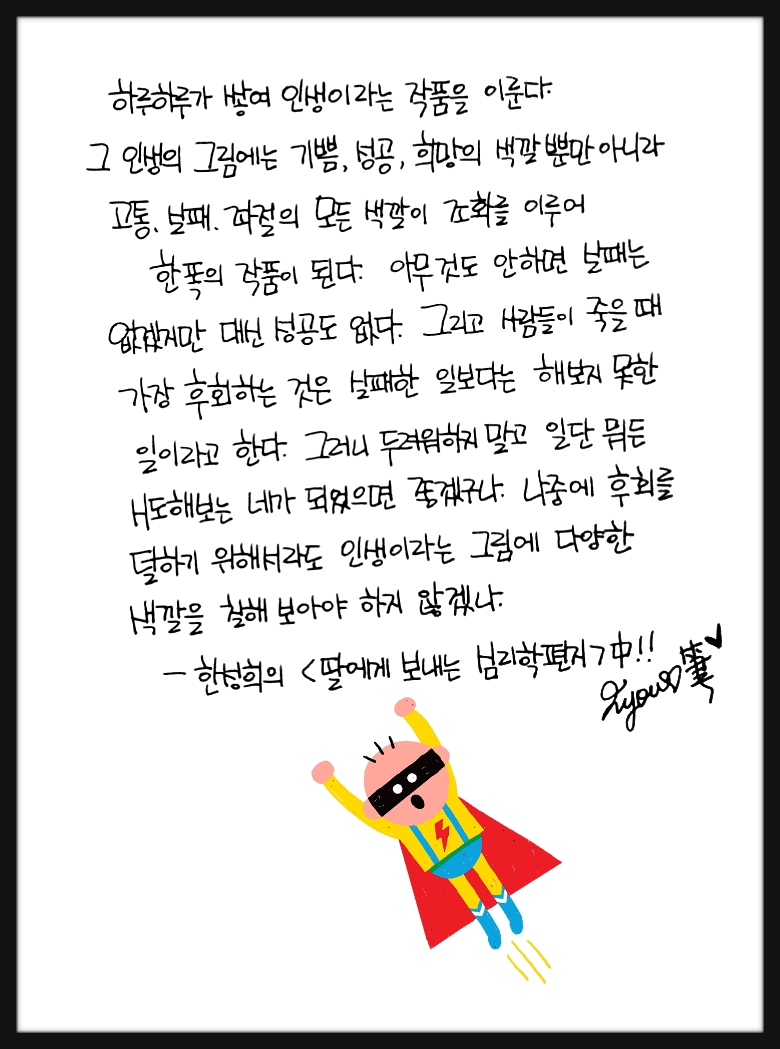 하루하루가 쌓여 인생이라는 작품을 이룬다.
그 인생의 그림에는 기쁨, 성공, 희망의 색깔 뿐만 아니라
고통, 실패, 좌절의 모든 색깔이 조화를 이루어
한폭의 작품이 된다. 아무것도 안하면 실패는
없겠지만 대신 성공도 없다. 그리고 사람들이 죽을 때
가장 후회하는 것은 실패한 일보다는 해보지 못한
일이라고 한다. 그러니 두려워하지 말고 일단 뭐든
시도해보는 네가 되었으면 좋겠구나. 나중에 후회를
덜하기 위해서라도 인생이라는 그림에 다양한
색깔을 칠해 보아야 하지 않겠니.
- 한성희의 <딸에게 보내는 심리학편지> 中!!